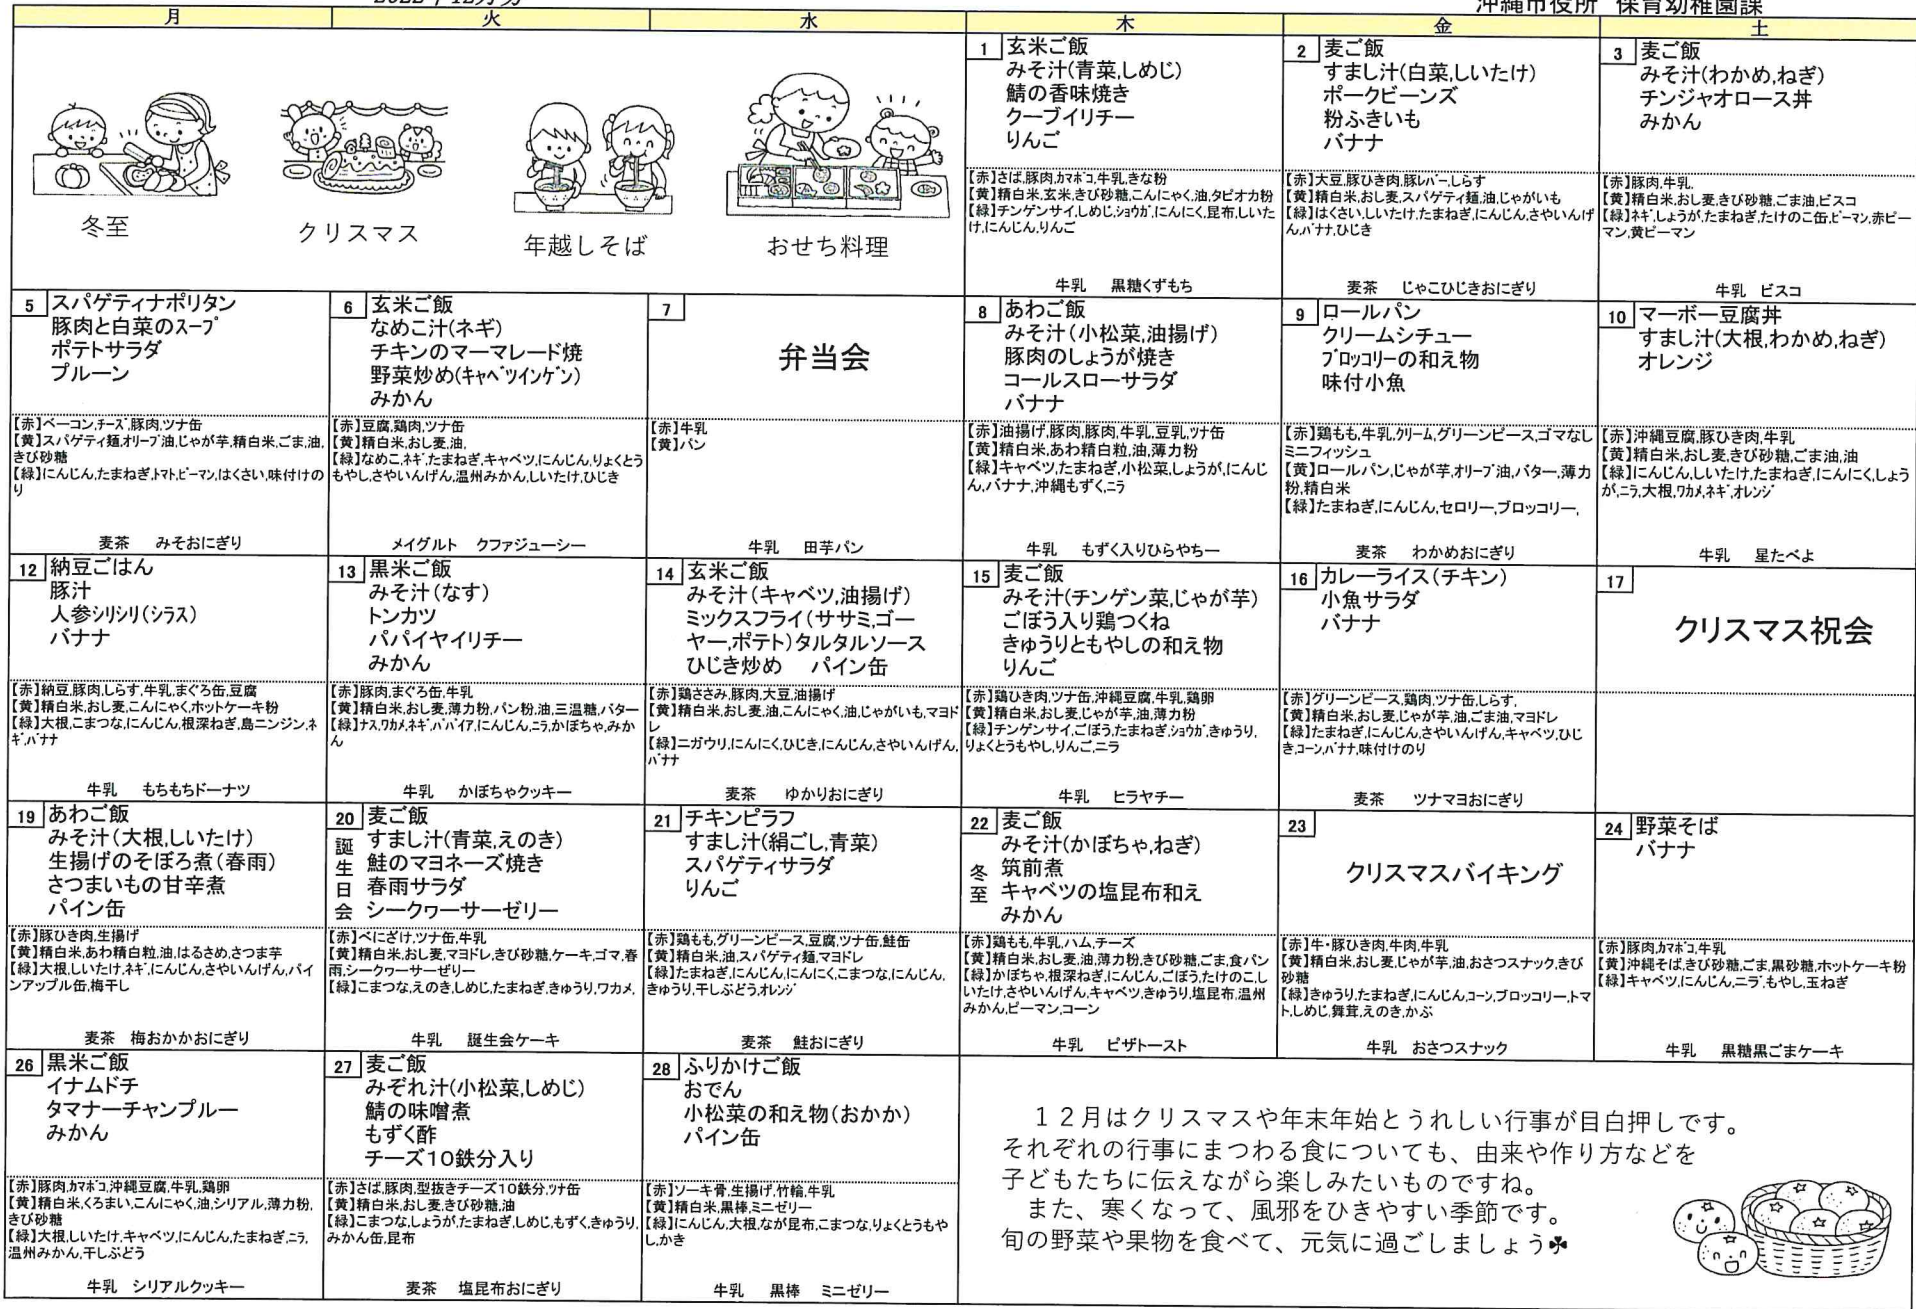 2022年12月分
沖縄市役所 保育幼稚園課
月
火
水
木
金
土
冬至
クリスマス
年越しそば
おせち料理
1 玄米ご飯
みそ汁(青菜,しめじ)
鯖の香味焼き
クーブイリチー
りんご
【赤】さば,豚肉,ｶﾏﾎﾞｺ,牛乳,きな粉
【黄】精白米,玄米,きび砂糖,こんにゃく,油,タピオカ粉
【緑】チンゲンサイ,しめじ,ｼｮｳｶﾞ,にんにく,昆布,しいた
け,にんじん,りんご
牛乳 黒糖くずもち
2 麦ご飯
すまし汁(白菜,しいたけ)
ポークビーンズ
粉ふきいも
バナナ
【赤】大豆,豚ひき肉,豚ﾚﾊﾞｰ,しらす
【黄】精白米,おし麦,スパゲティ麺,油,じゃがいも
【緑】はくさい,しいたけ,たまねぎ,にんじん,さやいんげ
ん,ﾊﾞﾅﾅ,ひじき
麦茶 じゃこひじきおにぎり
3 麦ご飯
みそ汁(わかめ,ねぎ)
チンジャオロース丼
みかん
【赤】豚肉,牛乳,
【黄】精白米,おし麦,きび砂糖,ごま油,ビスコ
【緑】ﾈｷﾞ,しょうが,たまねぎ,たけのこ缶,ﾋﾟｰﾏﾝ,赤ピー
マン,黄ピーマン
牛乳 ビスコ
5 スパゲティナポリタン
豚肉と白菜のｽｰﾌﾟ
ポテトサラダ
プルーン
【赤】ベーコン,ﾁｰｽﾞ,豚肉,ツナ缶
【黄】スパゲティ麺,ｵﾘｰﾌﾞ油,じゃが芋,精白米,ごま,油,
きび砂糖
【緑】にんじん,たまねぎ,ﾄﾏﾄ,ﾋﾟｰﾏﾝ,はくさい,味付けの
り
麦茶 みそおにぎり
6 玄米ご飯
なめこ汁(ネギ)
チキンのマーマレード焼
野菜炒め(ｷｬﾍﾞﾂｲﾝｹﾞﾝ)
みかん
【赤】豆腐,鶏肉,ツナ缶
【黄】精白米,おし麦,油,
【緑】なめこ,ﾈｷﾞ,たまねぎ,キャベツ,にんじん,りょくとう
もやし,さやいんげん,温州みかん,しいたけ,ひじき
メイグルト クファジューシー
7
弁当会
【赤】牛乳
【黄】パン
牛乳 田芋パン
8 あわご飯
みそ汁(小松菜,油揚げ)
豚肉のしょうが焼き
コールスローサラダ
バナナ
【赤】油揚げ,豚肉,豚肉,牛乳,豆乳,ﾂﾅ缶
【黄】精白米,あわ精白粒,油,薄力粉
【緑】キャベツ,たまねぎ,小松菜,しょうが,にんじ
ん,バナナ,沖縄もずく,ニラ
牛乳 もずく入りひらやちー
9 ロールパン
クリームシチュー
ﾌﾞﾛｯｺﾘｰの和え物
味付小魚
【赤】鶏もも,牛乳,ｸﾘｰﾑ,グリーンピース,ゴマなし
ミニフィッシュ
【黄】ロールパン,じゃが芋,ｵﾘｰﾌﾞ油,バター,薄力
粉,精白米
【緑】たまねぎ,にんじん,セロリー,ブロッコリー,
麦茶 わかめおにぎり
10 マーボー豆腐丼
すまし汁(大根,わかめ,ねぎ)
オレンジ
【赤】沖縄豆腐,豚ひき肉,牛乳
【黄】精白米,おし麦,きび砂糖,ごま油,油
【緑】にんじん,しいたけ,たまねぎ,にんにく,しょう
が,ニラ,大根,ﾜｶﾒ,ﾈｷﾞ,ｵﾚﾝｼﾞ
牛乳 星たべよ
12 納豆ごはん
豚汁
人参ｼﾘｼﾘ(ｼﾗｽ)
バナナ
【赤】納豆,豚肉,しらす,牛乳,まぐろ缶,豆腐
【黄】精白米,おし麦,こんにゃく,ホットケーキ粉
【緑】大根,こまつな,にんじん,根深ねぎ,島ニンジン,ネ
ｷﾞ,ﾊﾞﾅﾅ
牛乳 もちもちドーナツ
13 黒米ご飯
みそ汁(なす)
トンカツ
パパイヤイリチー
みかん
【赤】豚肉,まぐろ缶,牛乳
【黄】精白米,おし麦,薄力粉,パン粉,油,三温糖,バター
【緑】ﾅｽ,ﾜｶﾒ,ﾈｷﾞ,ﾊﾟﾊﾟｲｱ,にんじん,ニラ,かぼちゃ,みか
ん
牛乳 かぼちゃクッキー
14 玄米ご飯
みそ汁(キャベツ,油揚げ)
ミックスフライ(ササミ,ゴー
ヤー,ポテト)タルタルソース
ひじき炒め パイン缶
【赤】鶏ささみ,豚肉,大豆,油揚げ
【黄】精白米,おし麦,油,こんにゃく,油,じゃがいも,マヨド
レ
【緑】ニガウリ,にんにく,ひじき,にんじん,さやいんげん,
ﾊﾞﾅﾅ
麦茶 ゆかりおにぎり
15 麦ご飯
みそ汁(チンゲン菜,じゃが芋)
ごぼう入り鶏つくね
きゅうりともやしの和え物
りんご
【赤】鶏ひき肉,ツナ缶,沖縄豆腐,牛乳,鶏卵
【黄】精白米,おし麦,じゃが芋,油,薄力粉
【緑】チンゲンサイ,ごぼう,たまねぎ,ｼｮｳｶﾞ,きゅうり,
りょくとうもやし,りんご,ニラ
牛乳 ヒラヤチー
16 カレーライス(チキン)
小魚サラダ
バナナ
【赤】グリーンピース,鶏肉,ツナ缶,しらす,
【黄】精白米,おし麦,じゃが芋,油,ごま油,マヨドレ
【緑】たまねぎ,にんじん,さやいんげん,キャベツ,ひじ
き,ｺｰﾝ,ﾊﾞﾅﾅ,味付けのり
麦茶 ツナマヨおにぎり
17
クリスマス祝会
19 あわご飯
みそ汁(大根,しいたけ)
生揚げのそぼろ煮(春雨)
さつまいもの甘辛煮
パイン缶
【赤】豚ひき肉,生揚げ
【黄】精白米,あわ精白粒,油,はるさめ,さつま芋
【緑】大根,しいたけ,ﾈｷﾞ,にんじん,さやいんげん,パイ
ンアップル缶,梅干し
麦茶 梅おかかおにぎり
20 麦ご飯
誕生日会
すまし汁(青菜,えのき)
鮭のマヨネーズ焼き
春雨サラダ
シークヮーサーゼリー
【赤】べにざけ,ツナ缶,牛乳
【黄】精白米,おし麦,マヨドレ,きび砂糖,ケーキ,ゴマ,春
雨,シークヮーサーゼリー
【緑】こまつな,えのき,しめじ,たまねぎ,きゅうり,ワカメ,
牛乳 誕生会ケーキ
21 チキンピラフ
すまし汁(絹ごし,青菜)
スパゲティサラダ
りんご
【赤】鶏もも,グリーンピース,豆腐,ツナ缶,鮭缶
【黄】精白米,油,スパゲティ麺,マヨドレ
【緑】たまねぎ,にんじん,にんにく,こまつな,にんじん,
きゅうり,干しぶどう,ｵﾚﾝｼﾞ
麦茶 鮭おにぎり
22 麦ご飯
冬至
みそ汁(かぼちゃ,ねぎ)
筑前煮
キャベツの塩昆布和え
みかん
【赤】鶏もも,牛乳,ハム,チーズ
【黄】精白米,おし麦,油,薄力粉,きび砂糖,ごま,食パン
【緑】かぼちゃ,根深ねぎ,にんじん,ごぼう,たけのこ,し
いたけ,さやいんげん,キャベツ,きゅうり,塩昆布,温州
みかん,ピーマン,コーン
牛乳 ピザトースト
23
クリスマスバイキング
【赤】牛・豚ひき肉,牛肉,牛乳
【黄】精白米,おし麦,じゃが芋,油,おさつスナック,きび
砂糖
【緑】きゅうり,たまねぎ,にんじん,ｺｰﾝ,ブロッコリー,トマ
ト,しめじ,舞茸,えのき,かぶ
牛乳 おさつスナック
24 野菜そば
バナナ
【赤】豚肉,ｶﾏﾎﾞｺ,牛乳
【黄】沖縄そば,きび砂糖,ごま,黒砂糖,ホットケーキ粉
【緑】キャベツ,にんじん,ニラ,もやし,玉ねぎ
牛乳 黒糖黒ごまケーキ
26 黒米ご飯
イナムドチ
タマナーチャンプルー
みかん
【赤】豚肉,ｶﾏﾎﾞｺ,沖縄豆腐,牛乳,鶏卵
【黄】精白米,くろまい,こんにゃく,油,シリアル,薄力粉,
きび砂糖
【緑】大根,しいたけ,キャベツ,にんじん,たまねぎ,ニラ,
温州みかん,干しぶどう
牛乳 シリアルクッキー
27 麦ご飯
みぞれ汁(小松菜,しめじ)
鯖の味噌煮
もずく酢
チーズ10鉄分入り
【赤】さば,豚肉,型抜きチーズ10鉄分,ﾂﾅ缶
【黄】精白米,おし麦,きび砂糖,油
【緑】こまつな,しょうが,たまねぎ,しめじ,もずく,きゅうり,
みかん缶,昆布
麦茶 塩昆布おにぎり
28 ふりかけご飯
おでん
小松菜の和え物(おかか)
パイン缶
【赤】ソーキ骨,生揚げ,竹輪,牛乳
【黄】精白米,黒棒,ミニゼリー
【緑】にんじん,大根,なが昆布,こまつな,りょくとうもや
し,かき
牛乳 黒棒 ミニゼリー
１２月はクリスマスや年末年始とうれしい行事が目白押しです。
それぞれの行事にまつわる食についても、由来や作り方などを
子どもたちに伝えながら楽しみたいものですね。
また、寒くなって、風邪をひきやすい季節です。
旬の野菜や果物を食べて、元気に過ごしましょう☘